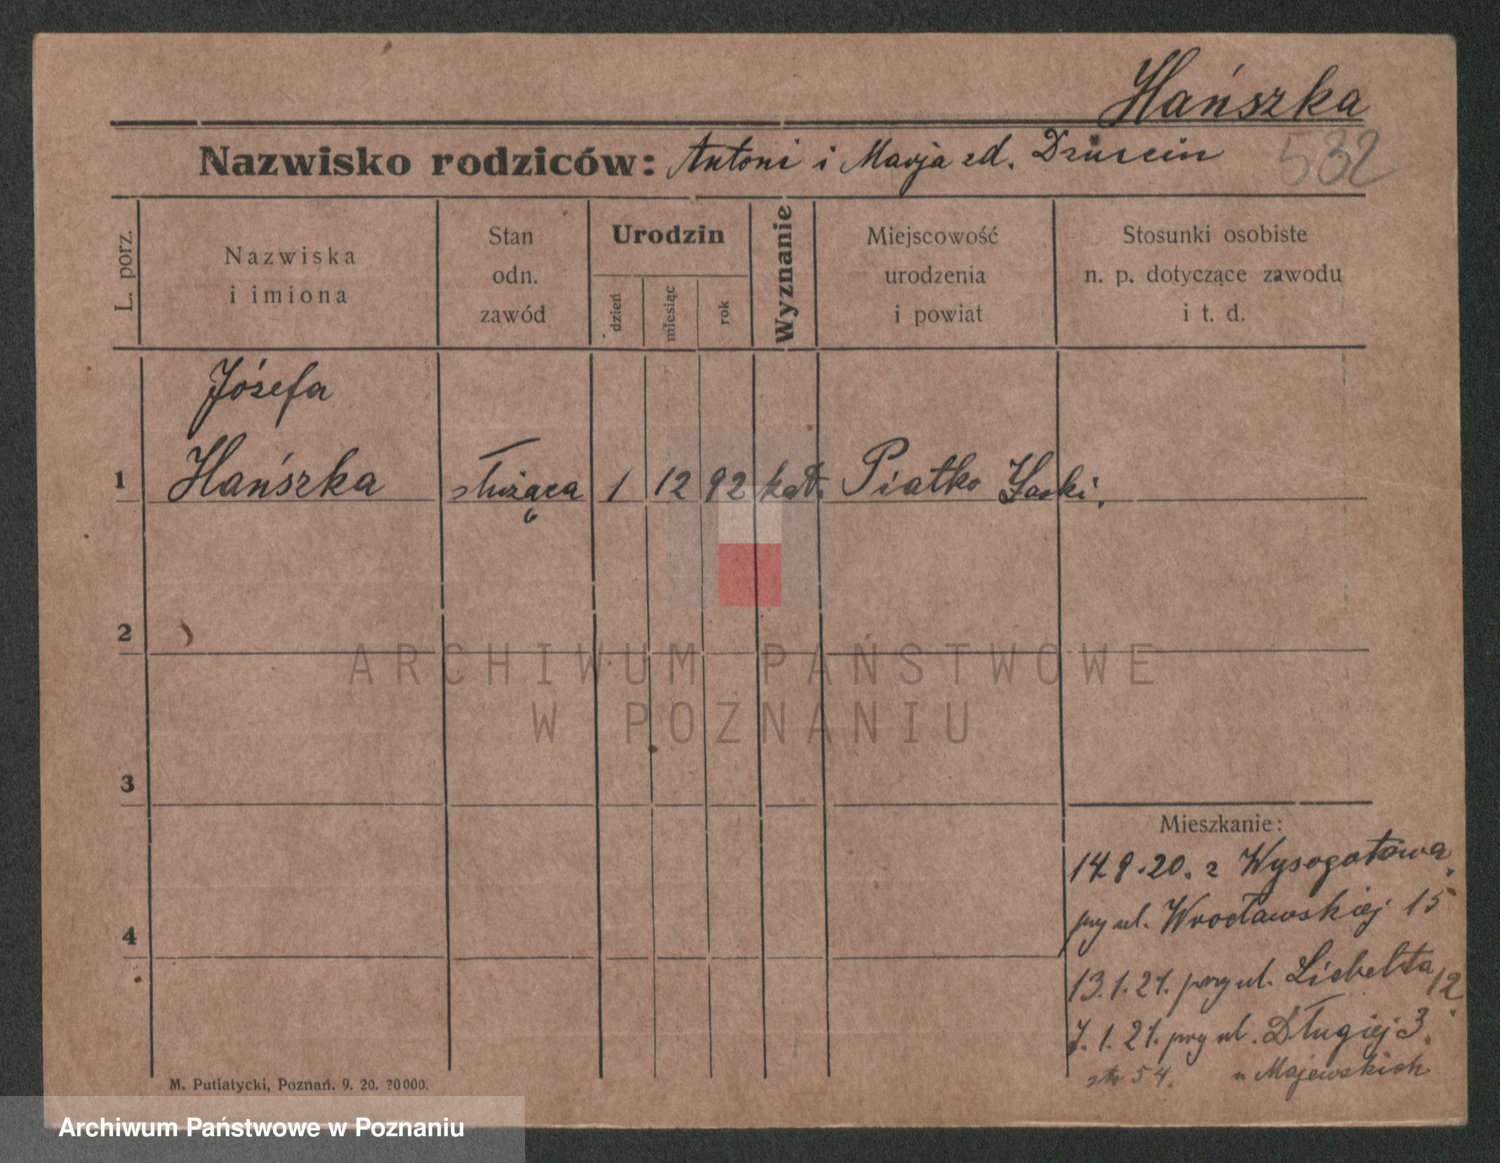 Hańszka
Nazwisko rodziców: Antoni i Marja zd.
532
L. porz.
Nazwiska
i imiona
Stan
odn.
zawód
Urodzin
dzień
miesiąc
rok
Wyznanie
Miejscowość
urodzenia
i powiat
Stosunki osobiste
n. p. dotyczące zawodu
i t. d.
Józefa
1 Hańszka służąca 1 12 92 kat. Piatko
2
3
4
ARCHIWUM PAŃSTWOWE
W POZNANIU
Mieszkanie:
14.9.20. z Wysogotowa
przy ul. Wrocławskiej 15
13.1.21. przy ul. Libelta 12.
7.1.21. przy ul. Długiej 3.
str 54. u Majewskich
M. Putiatycki, Poznań. 9. 20. 20000.
Archiwum Państwowe w Poznaniu